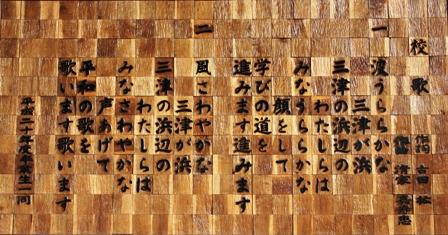 校歌
作詞 古田 拡
一
波うららかな
三津が浜
三津の浜辺の
わたしらは
みなうららかな
顔をして
学びの道を
進みます進みます
二
風さわやかな
三津が浜
三津の浜辺の
わたしらは
みなさわやかな
声あげて
平和の歌を
歌います歌います